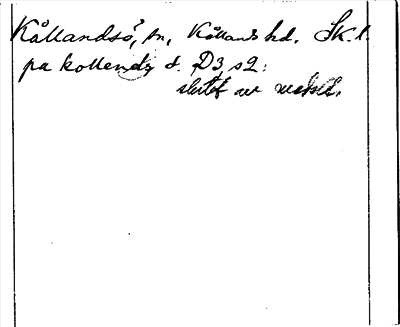 Kållandsö, sn, Kållands hd. Sk. l.
pa kollendz ö. D3 s2:
slutet av medeltid.